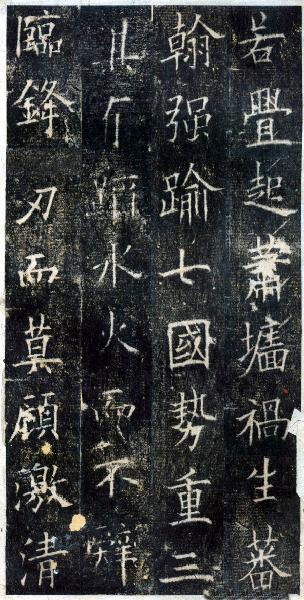 若舋起蕭墻禍生蕃
翰强踰七國勢重三
蹈水火而不辭
臨鋒刃而莫顧激清